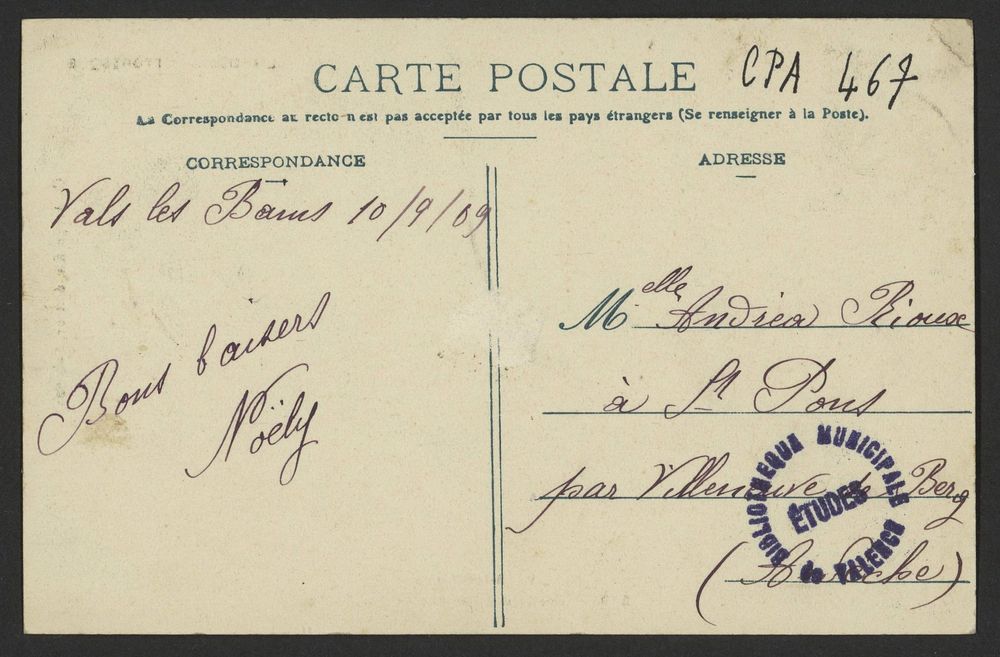 CARTE POSTALE
CPA 467
La Correspondance au recto n'est pas acceptée par tous les pays étrangers (Se renseigner à la Poste).
CORRESPONDANCE
Vals les Bains 10/9/09
Bons baisers
Noëly
ADRESSE
Melle Andréa Rioux
à St Pons
par Villeneuve de Berg
(Ardèche)
BIBLIOTHEQUE MUNICIPALE
ÉTUDES
de VALENCE